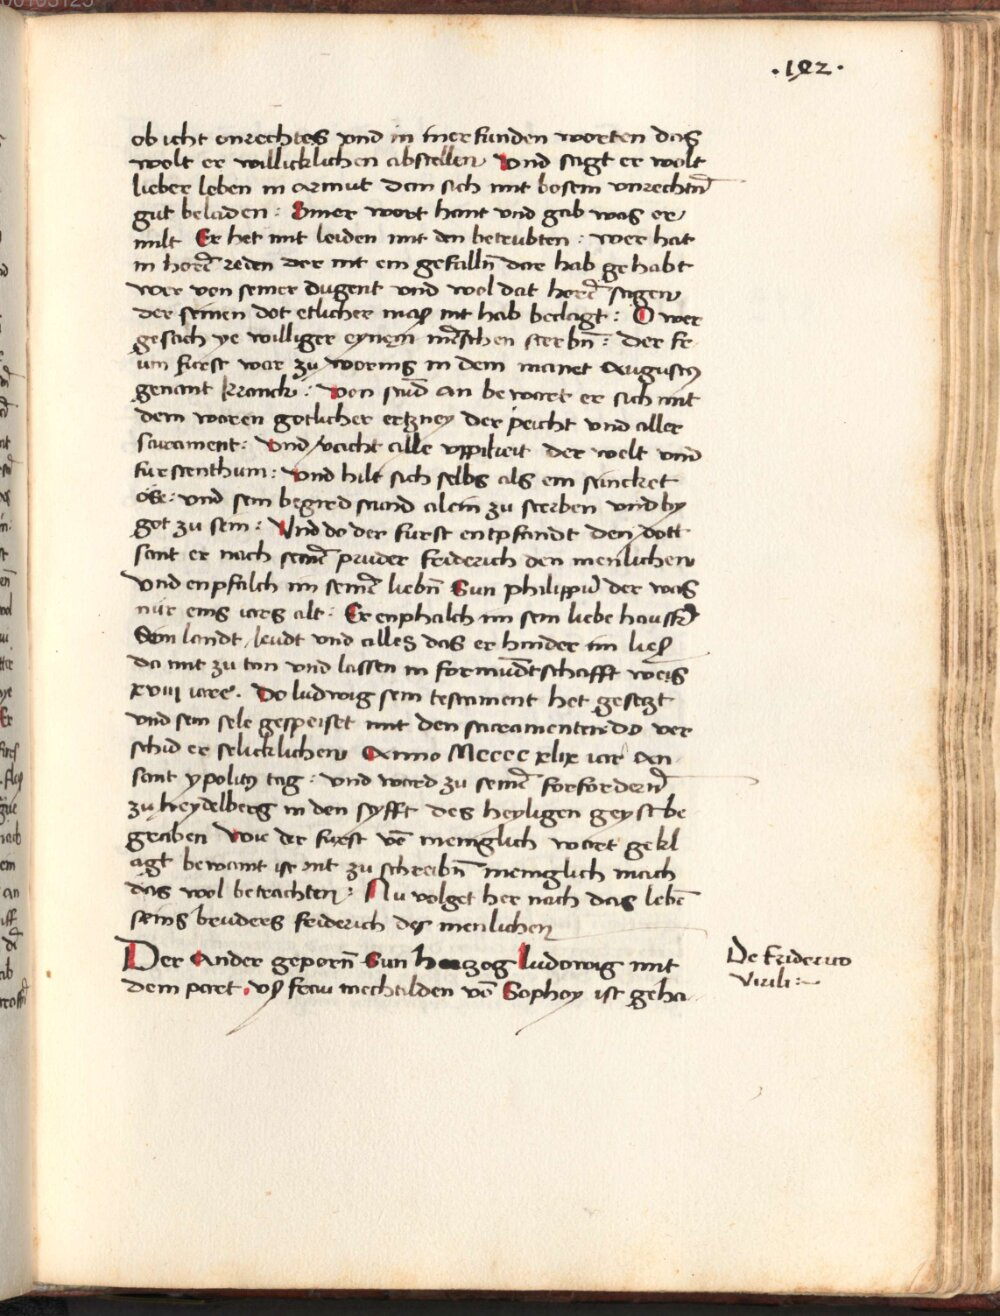 ·192·
ob icht onrechtes vnd in iner funden worten das
wolt er willicklichen abstellen Vnd sagt er wolt
lieber leben in armut dan sich mit bosem vnrechtn̄
gut beladen : Siner wort hant vnd gab was er
milt Er het mit leiden mit den betrubten : wer hat
in horē reden der nit ein gefalln̄ dar hab gehabt
wer von seiner dugent vnd wol dat horē sagen
der seinen dot etlicher maß nit hab beclagt : O wer
gesach ye williger eynem mēschen sterbn̄ : der fr
um furst war zu worms in dem manet Augustꝰ
genant kranck : von stūd an bewart er sich mit
dem waren gotlicher ertzney der peicht vnd aller
sacrament : Vnd vacht alle vppikeit der welt vnd
furstenthum : Vnd hilt sich selbs als ein
vnd sein begird stund alein zu sterben vnd by
got zu sein : Vnd do der furst entpfandt den dott
sant er nach seinē pruder friderich den menlichen
vnd enpfalch im seinē liebn̄ Sun philippū der was
nur eins iars alt : Er enphalch im sein liebe
Sein landt / leudt vnd alles das er hinder im ließ
do mit zu ton vnd lassen in formūdtschafft weis
xviij iare . Do ludwig sein testament het gesetzt
vnd sein sele gespeiset mit den sacramenten do ver
schid er selicklichen Anno Mcccc xlix iar an
sant ypolitꝰ tag : vnd ward zu seinē forfordern̄
zu heydelberg in den syfft des heyligen geyst be
graben Wie der furst vō meniglich wart gekl
agt bewamt ist nit zu schreibn̄ meniglich mach
das wol betrachten : Nu volget her nach das lebē
seins bruders friderich des menlichen
Der Ander geporn̄ Sun hertzog ludowig mit
dem paret . vß frau mechtilden vō Sophoy ist geha
De friderico
virili :~